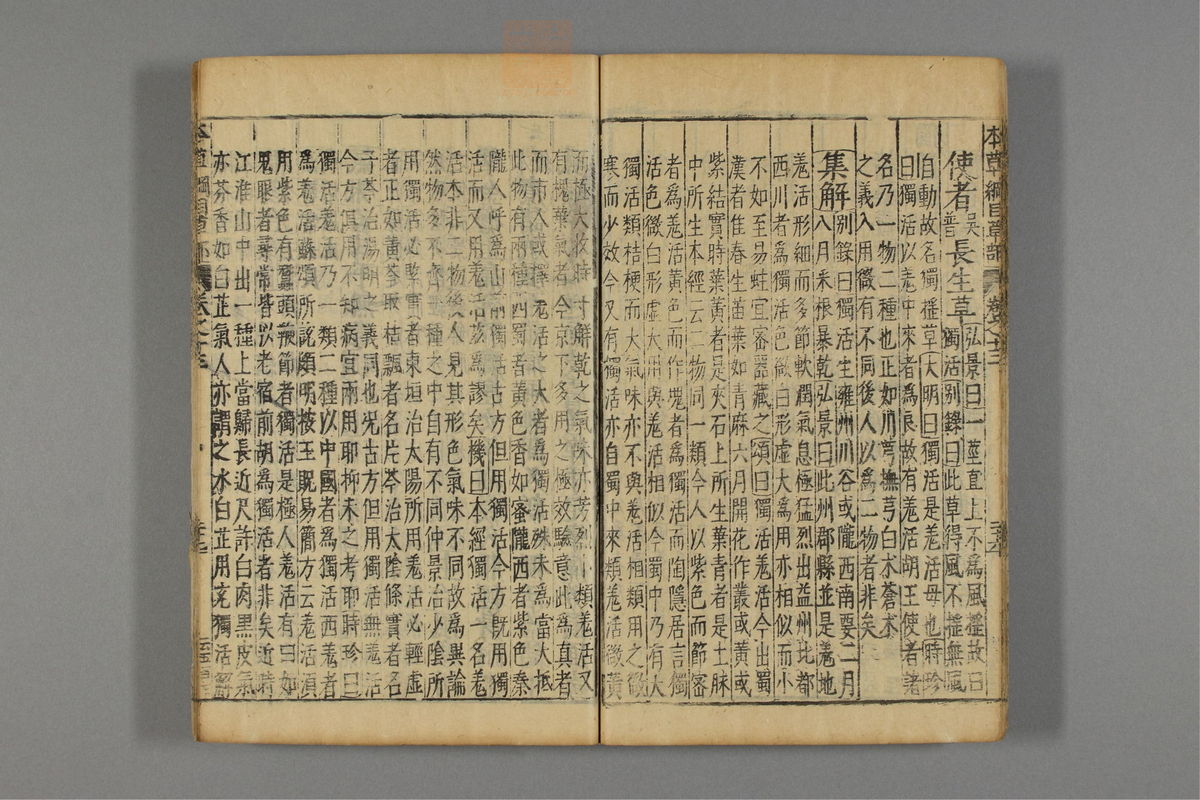 本草綱目草部 卷之十三
使者吳普長生草弘景曰一莖直上不為風搖故曰獨活别錄曰此草得風不搖無風
自動故名獨搖草大明曰獨活是羗活母也時珍
曰獨活以羗中來者為良故有羗活胡王使者諸
名乃一物二種也正如川芎撫芎白术蒼术
之義入用微有不同後人以為二物者非矣
集解别錄曰獨活生雍州川谷或隴西南安二月
八月采根暴乾弘景曰此州郡縣並是羗地
羗活形細而多節軟潤氣息極猛烈出益州北都
西川者為獨活色微白形虛大為用亦相似而小
不如至易蛀宜密器藏之頌曰獨活羗活今出蜀
漢者佳春生苗葉如青麻六月開花作叢或黃或
紫結實時葉黃者是夾石上所生葉青者是土脉
中所生本經云二物同一類今人以紫色而節密
者為羗活黃色而作塊者為獨活而陶隱居言獨
活色微白形虛大用與羗活相似今蜀中乃有大
獨活類桔梗而大氣味亦不與羗活相類用之微
寒而少效今又有獨活亦自蜀中來類羗活微黃
而極大收時寸解乾之氣味亦芳烈小類羗活又
有槐葉氣者今京下多用之極效驗意此為真者
而市人或擇羗活之大者為獨活殊未為當大抵
此物有兩種西蜀者黃色香如蜜隴西者紫色秦
隴人呼為山前獨活古方但用獨活今方既用獨
活而又用羗活茲為謬矣機曰本經獨活一名羗
活本非二物後人見其形色氣味不同故為異論
然物多不齊一種之中自有不同仲景治少陰所
用獨活必緊實者東垣治太陽所用羗活必輕虛
者正如黃芩取枯飄者名片芩治太陰條實者名
子芩治陽明之義同也况古方但用獨活無羗活
今方俱用不知病宜兩用耶抑未之考耶時珍曰
獨活羗活乃一類二種以中國者為獨活西羗者
為羗活蘇頌所說頗明按王貺易簡方云羗活須
用紫色有蠶頭鞭節者獨活是極大羗活有臼如
鬼眼者尋常皆以老宿前胡為獨活者非矣近時
江淮山中出一種土當歸長近尺許白肉黑皮氣
亦芬香如白芷氣人亦謂之水白芷用充獨活解
本草綱目草部 卷之十三